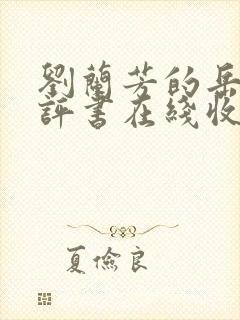 劉蘭芳的岳
評書在綫收
夏儉良